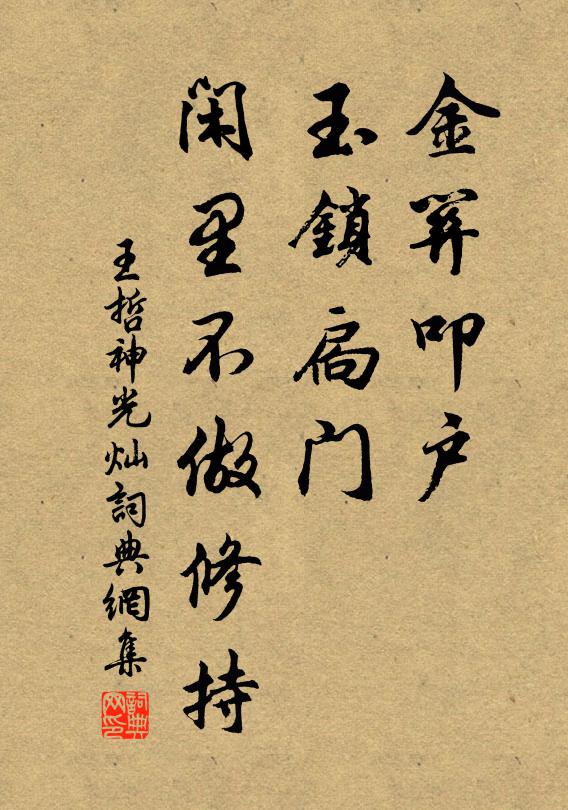 金關叩户
玉鎖扃门
閑里不做修持
王哲神光灿詞典網集
詞典网印